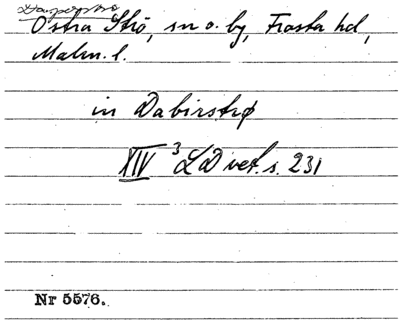 Östra Strö, sn o. by, Frosta hd,
Malm. l.
in Dabirstrø
XIV 3 LD vet. s. 231
Nr 5576.